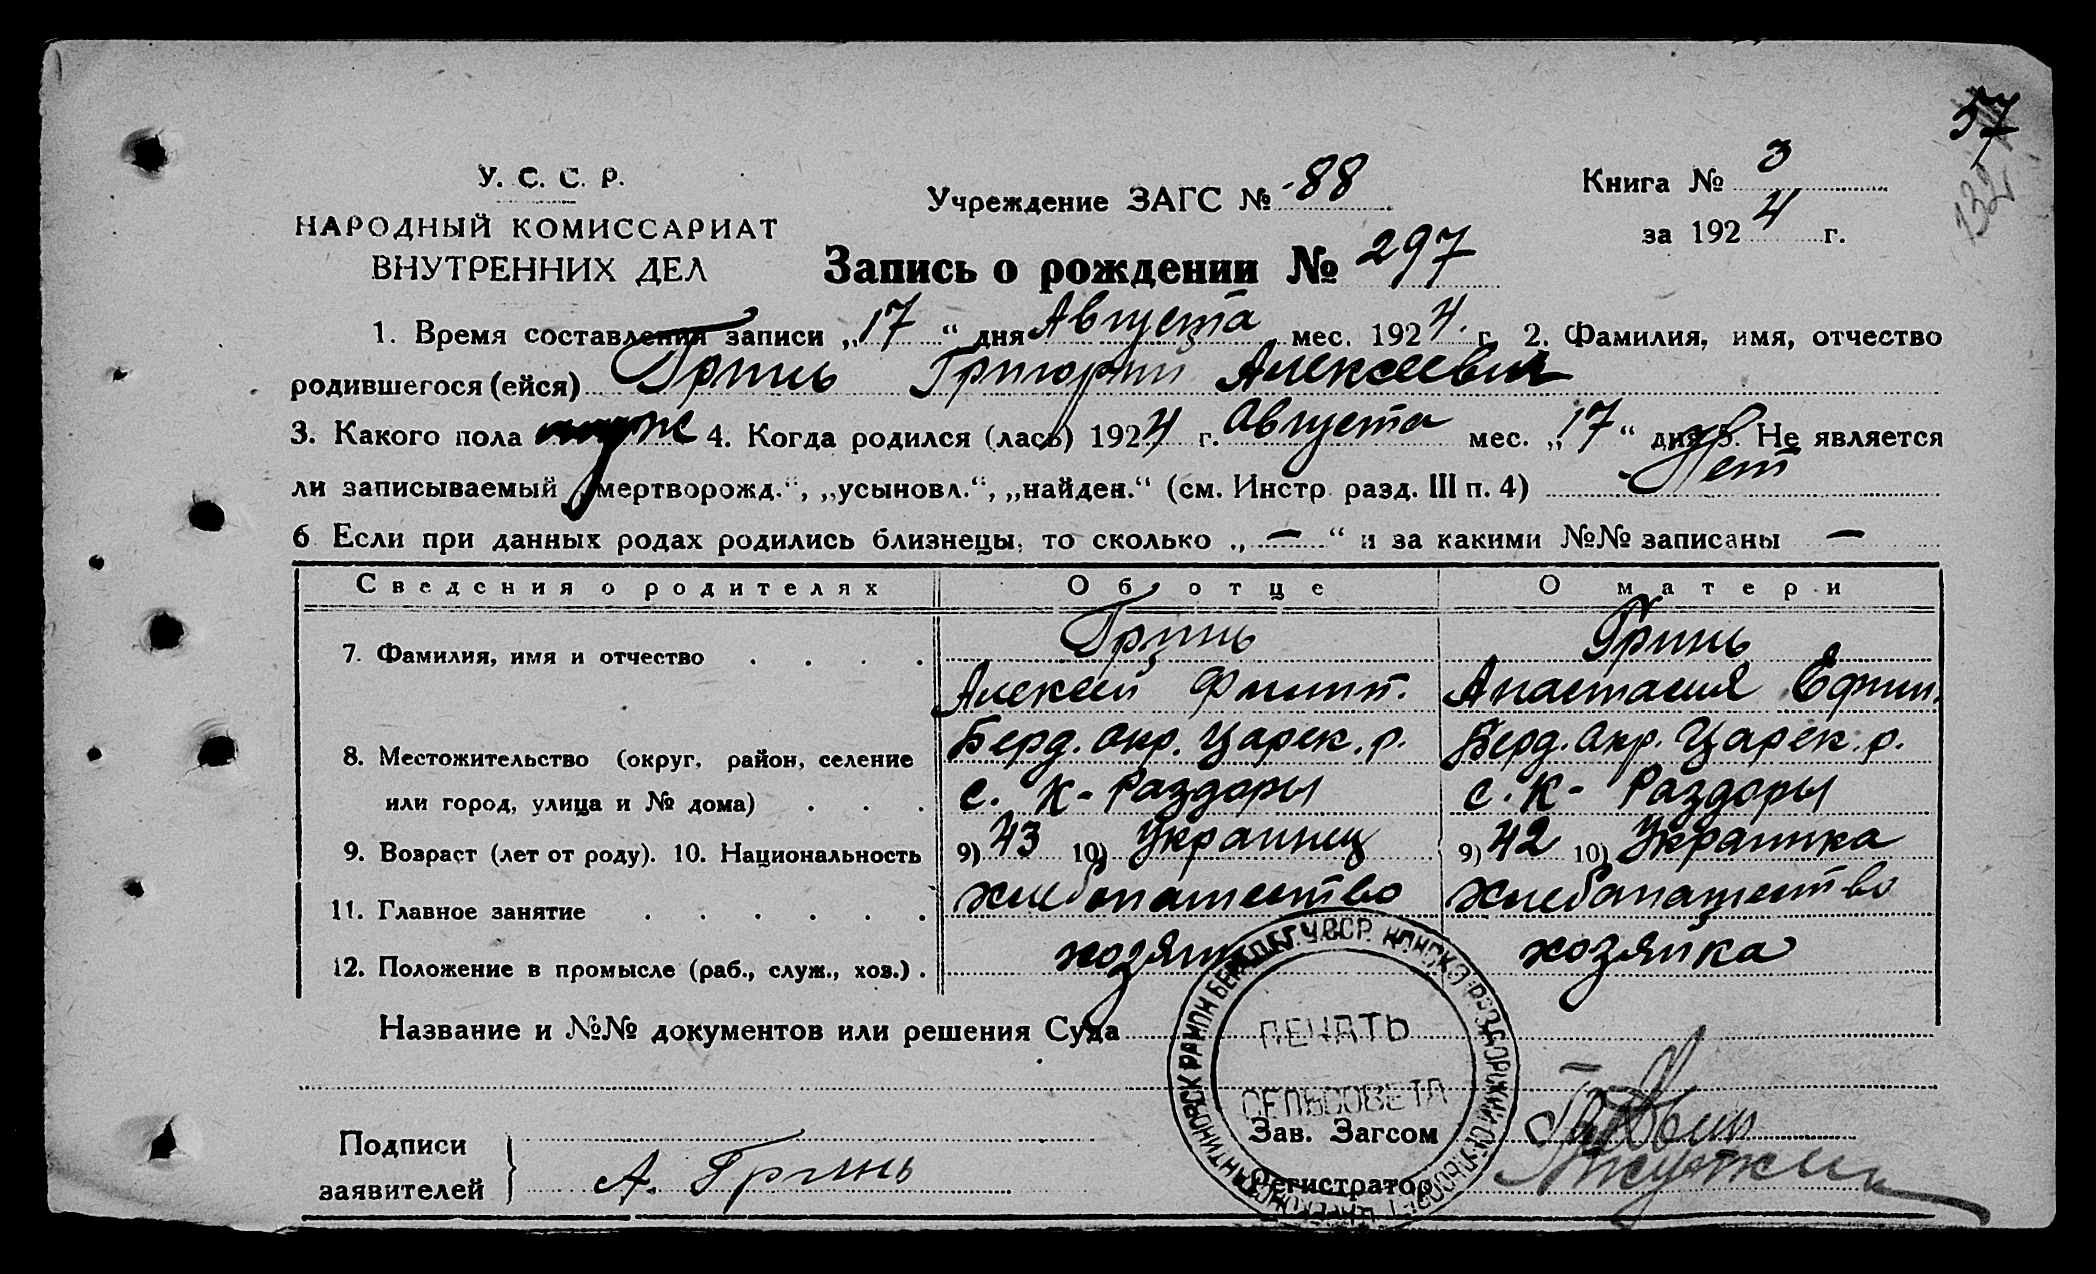 57
132
У. С. С. Р.
НАРОДНЫЙ КОМИССАРИАТ
ВНУТРЕННИХ ДЕЛ
Учреждение ЗАГС № 88
Книга № 3
за 1924 г.
Запись о рождении № 297
1. Время составления записи „17“ дня Августа мес. 1924 г. 2. Фамилия, имя, отчество
родившегося (ейся) Гринь Григорий Алексеевич
3. Какого пола муж 4. Когда родился (лась) 1924 г. Августа мес. „17“ дня 5. Не является
ли записываемый „мертворожд.“, „усыновл.“, „найден.“ (см. Инстр. разд. III п. 4) Нет
6. Если при данных родах родились близнецы, то сколько „—“ и за какими №№ записаны —
Сведения о родителях Об отце О матери
7. Фамилия, имя и отчество . . . . Гринь Гринь
Алексей Филип. Анастасия Ефим.
8. Местожительство (округ, район, селение Берд. Окр. Царек. р. Берд. Окр. Царек. р.
или город, улица и № дома) . . . с. К-Раздоры с. К-Раздоры
9. Возраст (лет от роду). 10. Национальность 9) 43 10) Украинец 9) 42 10) Украинка
11. Главное занятие . . . . . . Хлебопашество Хлебопашество
12. Положение в промысле (раб., служ., хоз.) . хозяин хозяйка
Название и №№ документов или решения Суда
ПЕЧАТЬ
СЕЛЬСОВЕТА
Подписи
заявителей
А. Гринь
Зав. Загсом
Регистратор